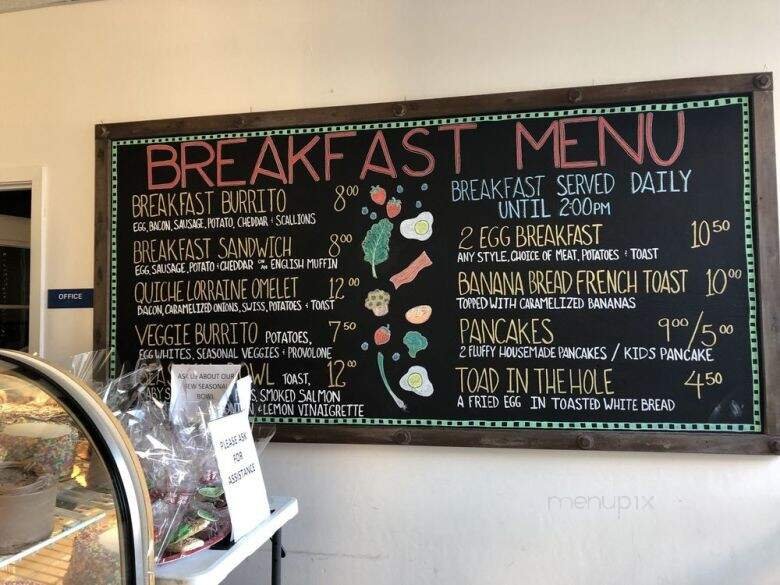 BREAKFAST MENU
BREAKFAST BURRITO 8.00
EGG, BACON, SAUSAGE, POTATO, CHEDDAR + SCALLIONS
BREAKFAST SANDWICH 8.00
EGG, SAUSAGE, POTATO + CHEDDAR ON AN ENGLISH MUFFIN
QUICHE LORRAINE OMELET 12.00
BACON, CARAMELIZED ONIONS, SWISS, POTATOES + TOAST
VEGGIE BURRITO POTATOES, 7.50
EGG WHITES, SEASONAL VEGGIES + PROVOLONE
WL TOAST, 12.00
BABY S S, SMOKED SALMON
N + LEMON VINAIGRETTE
BREAKFAST SERVED DAILY
UNTIL 2:00PM
2 EGG BREAKFAST 10.50
ANY STYLE, CHOICE OF MEAT, POTATOES + TOAST
BANANA BREAD FRENCH TOAST 10.00
TOPPED WITH CARAMELIZED BANANAS
PANCAKES 9.00/5.00
2 FLUFFY HOUSEMADE PANCAKES / KIDS PANCAKE
TOAD IN THE HOLE 4.50
A FRIED EGG IN TOASTED WHITE BREAD
OFFICE
ASK US ABOUT OUR
NEW SEASONAL
BOWL
PLEASE ASK
FOR
ASSISTANCE
menupix